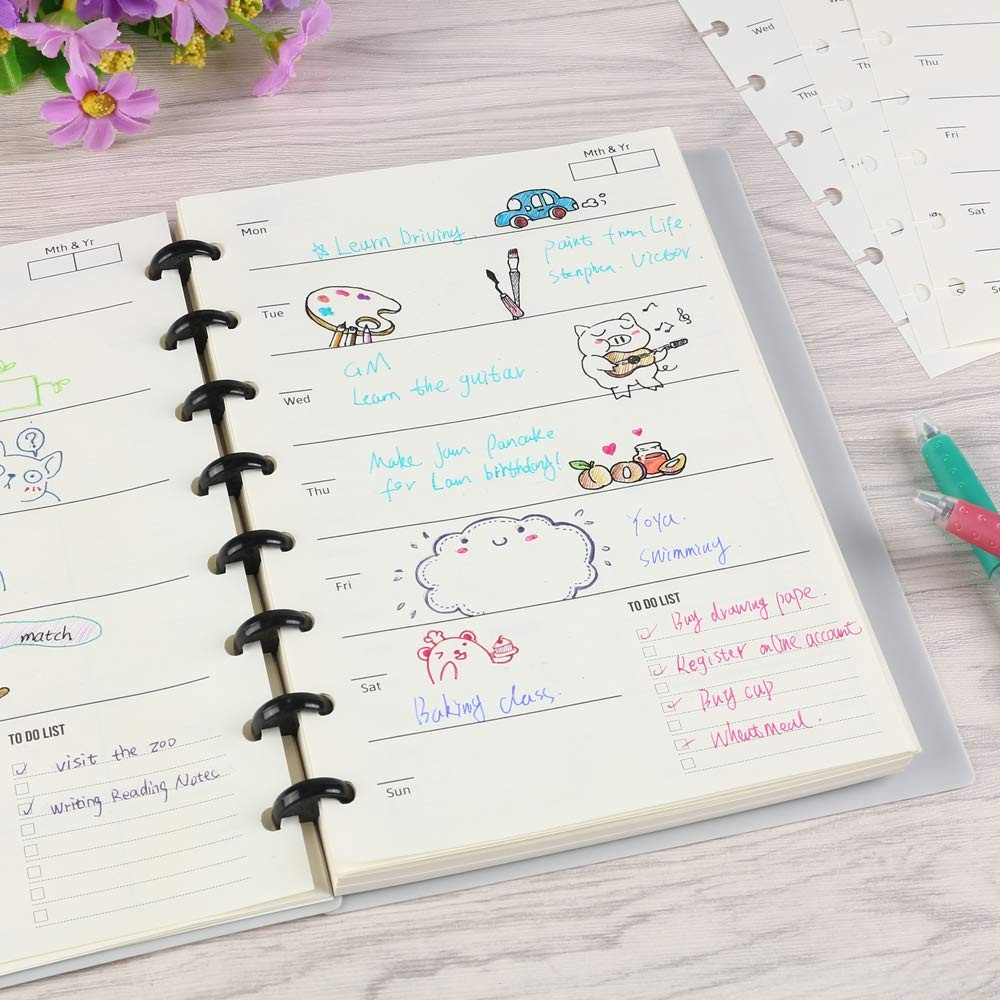 Mth & Yr
?
match
TO DO LIST
visit the zoo
Writing Reading Notes
Mth & Yr
Mon
☆ Learn Driving
Tue
paint from Life.
Stenphen. Victor.
Wed
GM
Learn the guitar.
Thu
Make Jam Pancake
for Eam birthday!
Fri
Yoya.
Swimming.
Sat
Baking class.
Sun
TO DO LIST
Buy drawing pape.
Register online account
Buy cup
Wheatmeal.
Wed
Thu
Thu
Fri
Sat